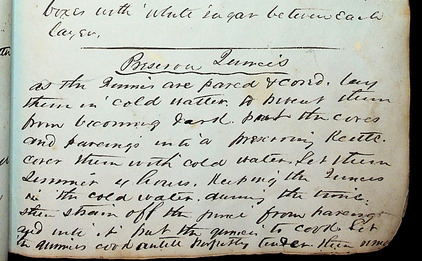 boxes with white sugar between each
layer.
Preserve Quinces
as the Quinces are pared & cored. lay
them in cold watter. to prevent them
from becoming hard. put the cores
and parings into a preserving kettle.
cover them with cold water. Let them
Simmer 4 hours. Keeping the Quinces
in the cold water during the time.
then strain off the juice from parings
and into it put the quinces to cook. Let
the quinces cook untill perfectly tender. then